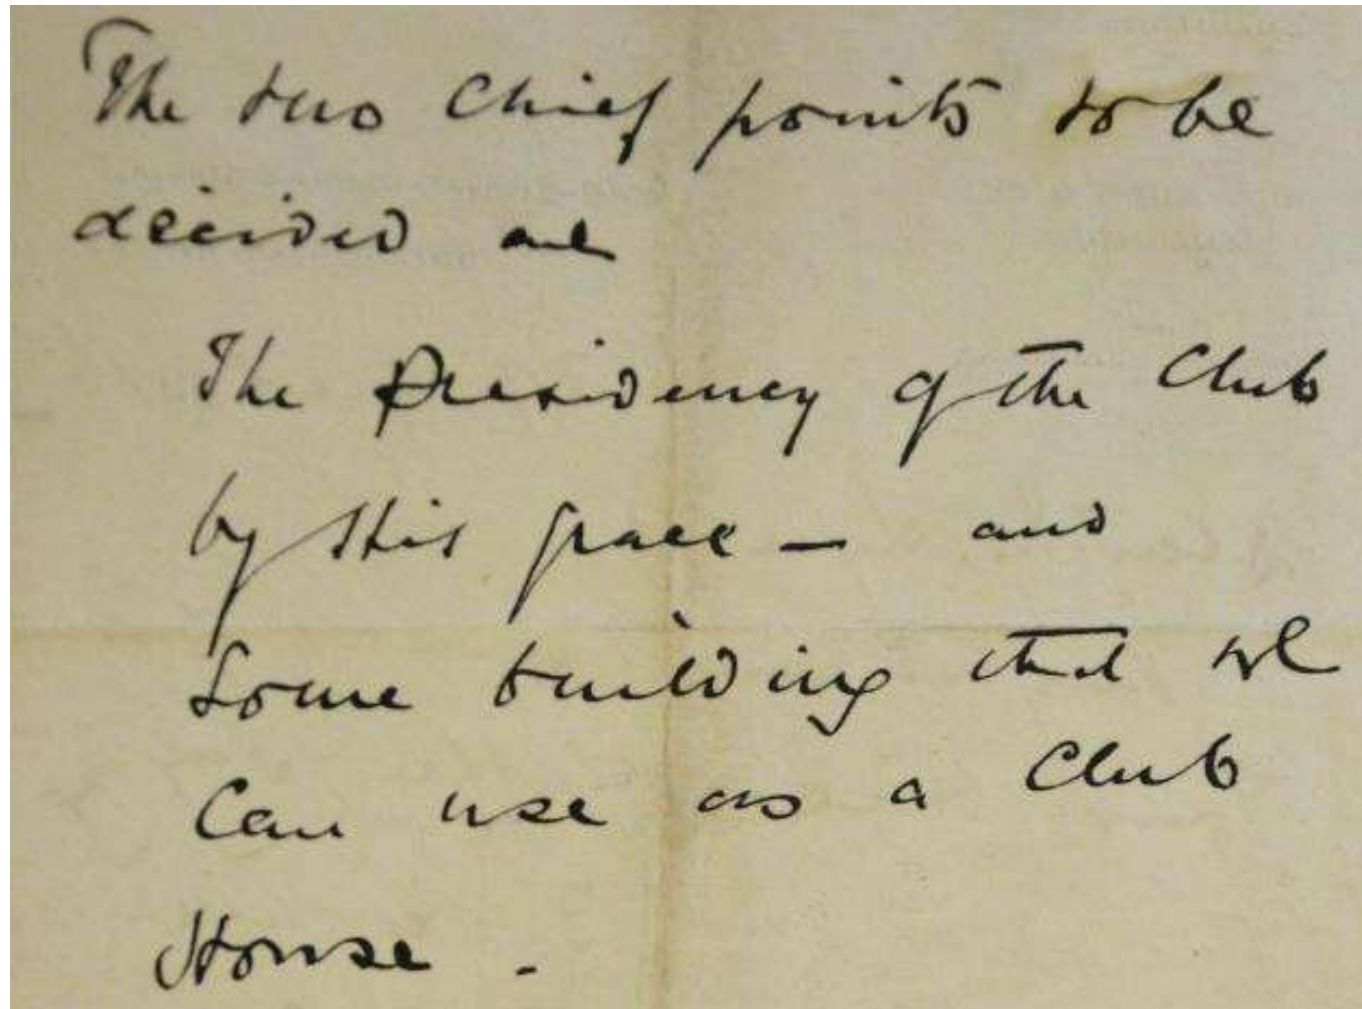 The two Chief points to be
decided are
The Presidency of the Club
by His Grace — and
Some building that we
Can use as a Club
House .